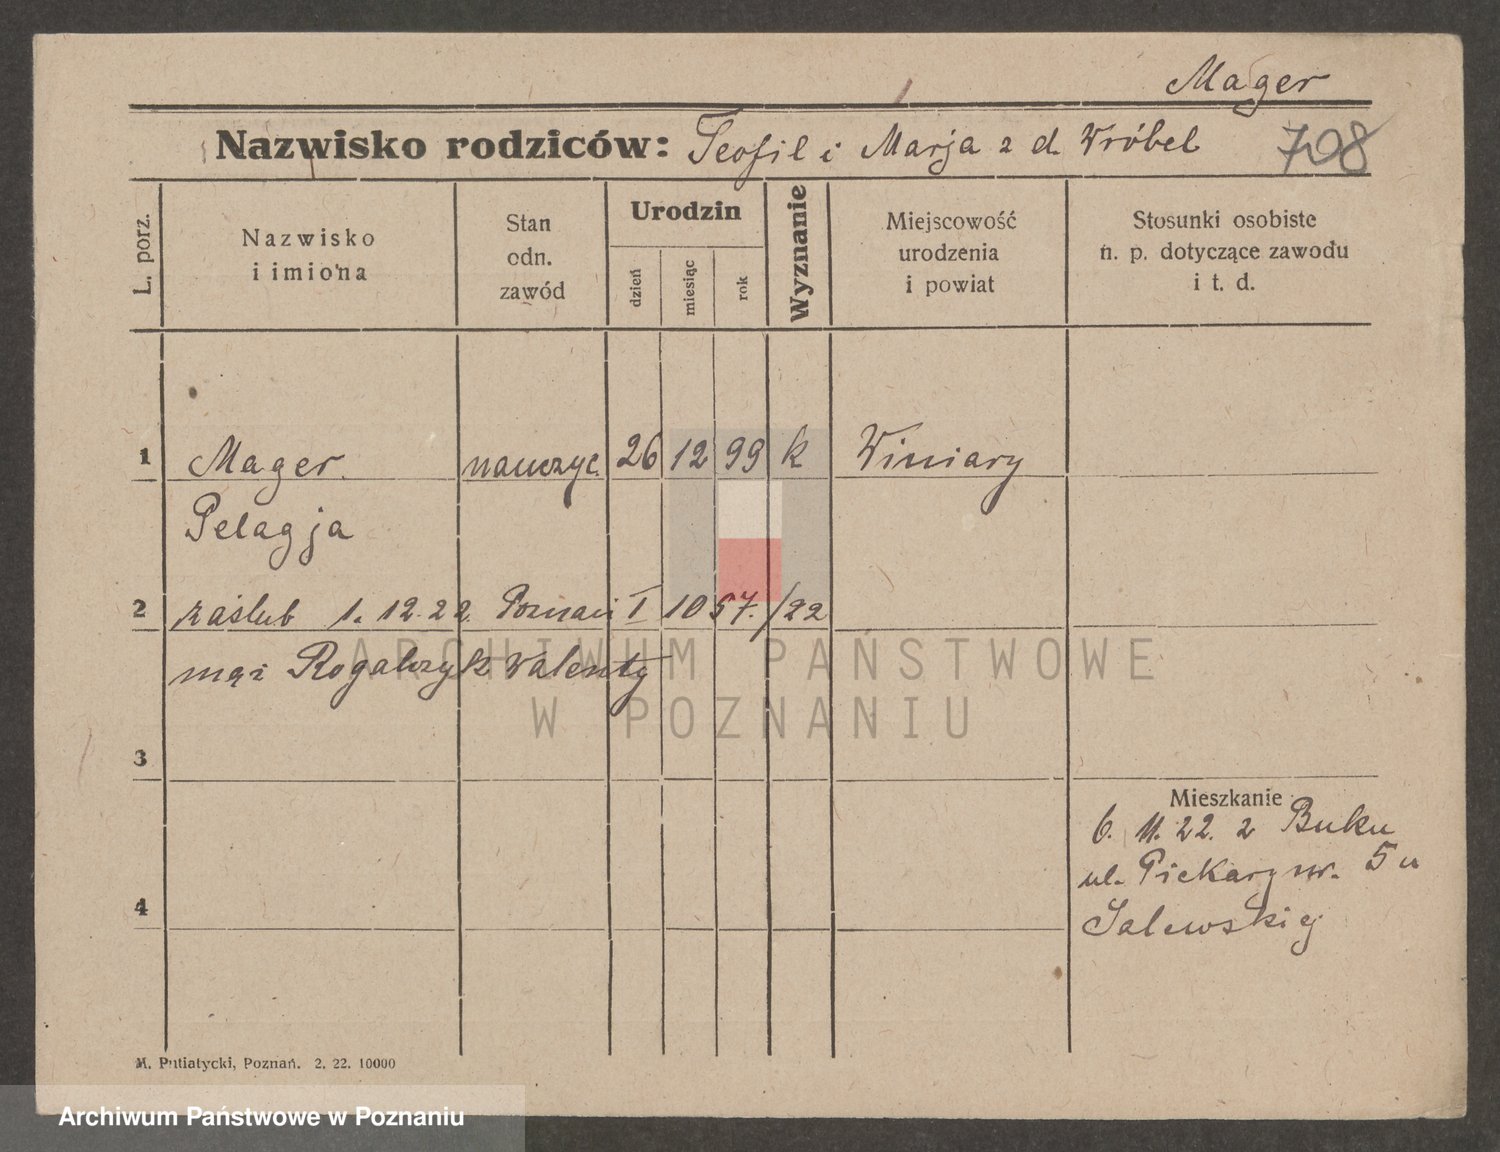 Mager
Nazwisko rodziców: Teofil i Marja z d. Wróbel 708
L. porz.
Nazwisko
i imiona
Stan
odn.
zawód
Urodzin
dzień
miesiąc
rok
Wyznanie
Miejscowość
urodzenia
i powiat
Stosunki osobiste
n. p. dotyczące zawodu
i t. d.
1 Mager nauczyc. 26 12 99 k Winiary
Pelagja
2 zaślub 1. 12. 22. Poznań I 1057./22
mąż Rogalczyk Walenty
3
Mieszkanie
6. 11. 22. z Buku
ul. Piekary nr. 5 u
4
Salewskiej
M. Putiatycki, Poznań. 2. 22. 10000
ARCHIWUM PAŃSTWOWE
W POZNANIU
Archiwum Państwowe w Poznaniu